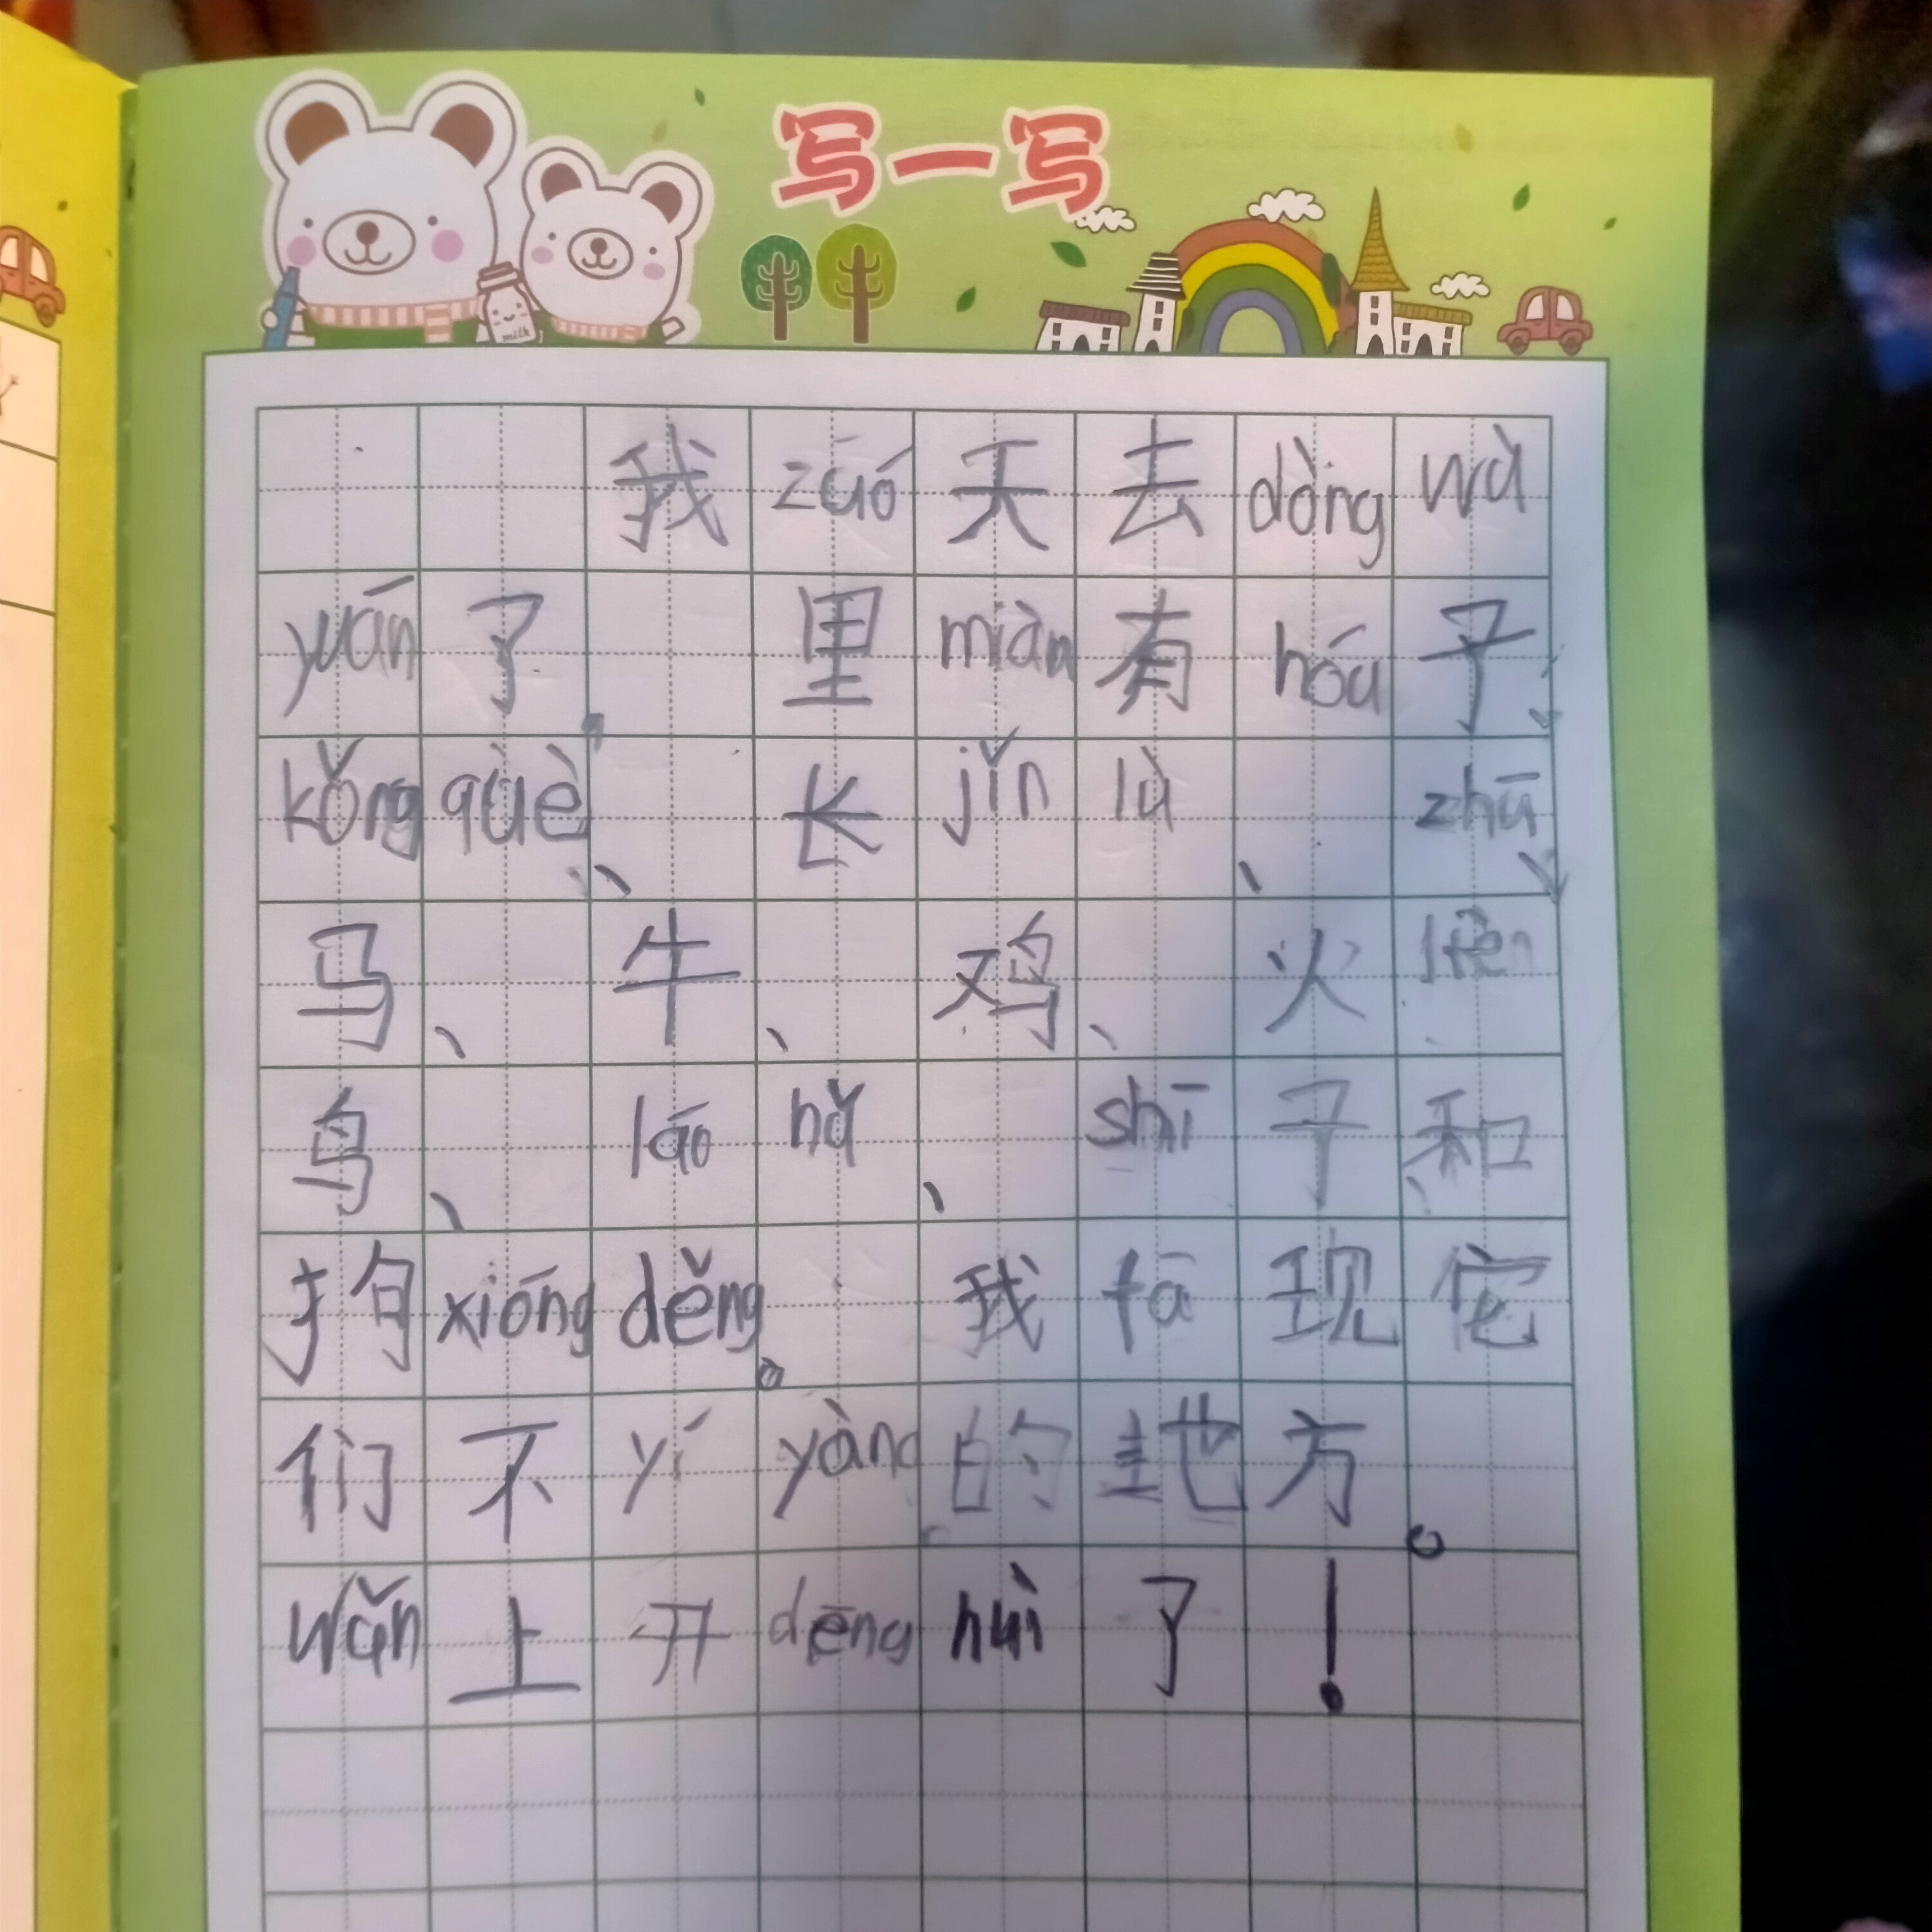 写一写
milk
我 zuó 天 去 dòng wù
yuán 了。 里 miàn 有 hóu 子、
kǒng què、 长 jǐn lù、 zhū、
马、 牛、 鸡、 火
鸟、 láo hǔ、 shī 子 和
狗 xióng děng。 我 fā 现 它
们 不 yí yàng 的 地 方。
wǎn 上 开 dēng hùi 了 !